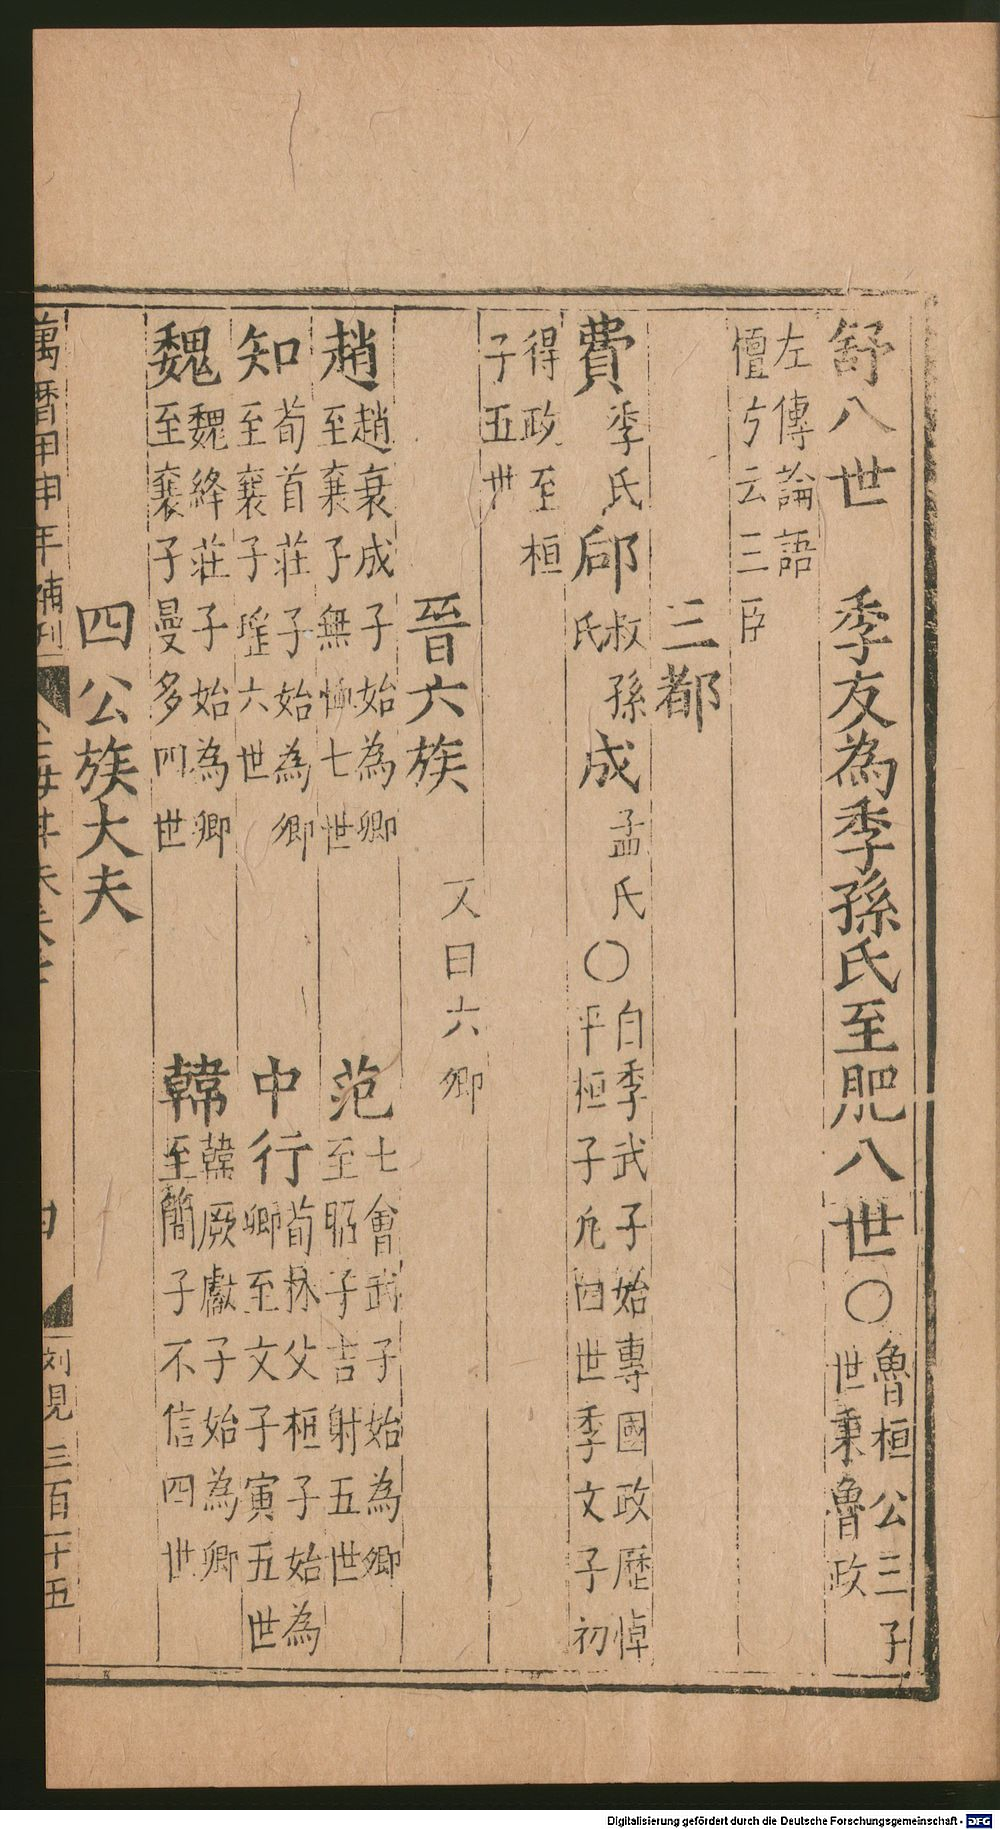 舒八世　季友為季孫氏至肥八世〇魯桓公三子
世秉魯政
左傳論語
檀弓云三臣
三都
費季氏郈叔孫氏成孟氏〇自季武子始專國政歷悼
平桓子凡四世季文子初
得政至桓
子五世
晉六族　又曰六卿
趙趙衰成子始為卿
至襄子無恤七世
范士會武子始為卿
至昭子吉射五世
知荀首莊子始為卿
至襄子瑤六世
中行荀林父桓子始為
卿至文子寅五世
魏魏絳莊子始為卿
至襄子曼多四世
韓韓厥獻子始為卿
至簡子不信四世
四公族大夫
萬曆甲申年補刊
刘見 三百二十五
Digitalisierung gefördert durch die Deutsche Forschungsgemeinschaft - DFG